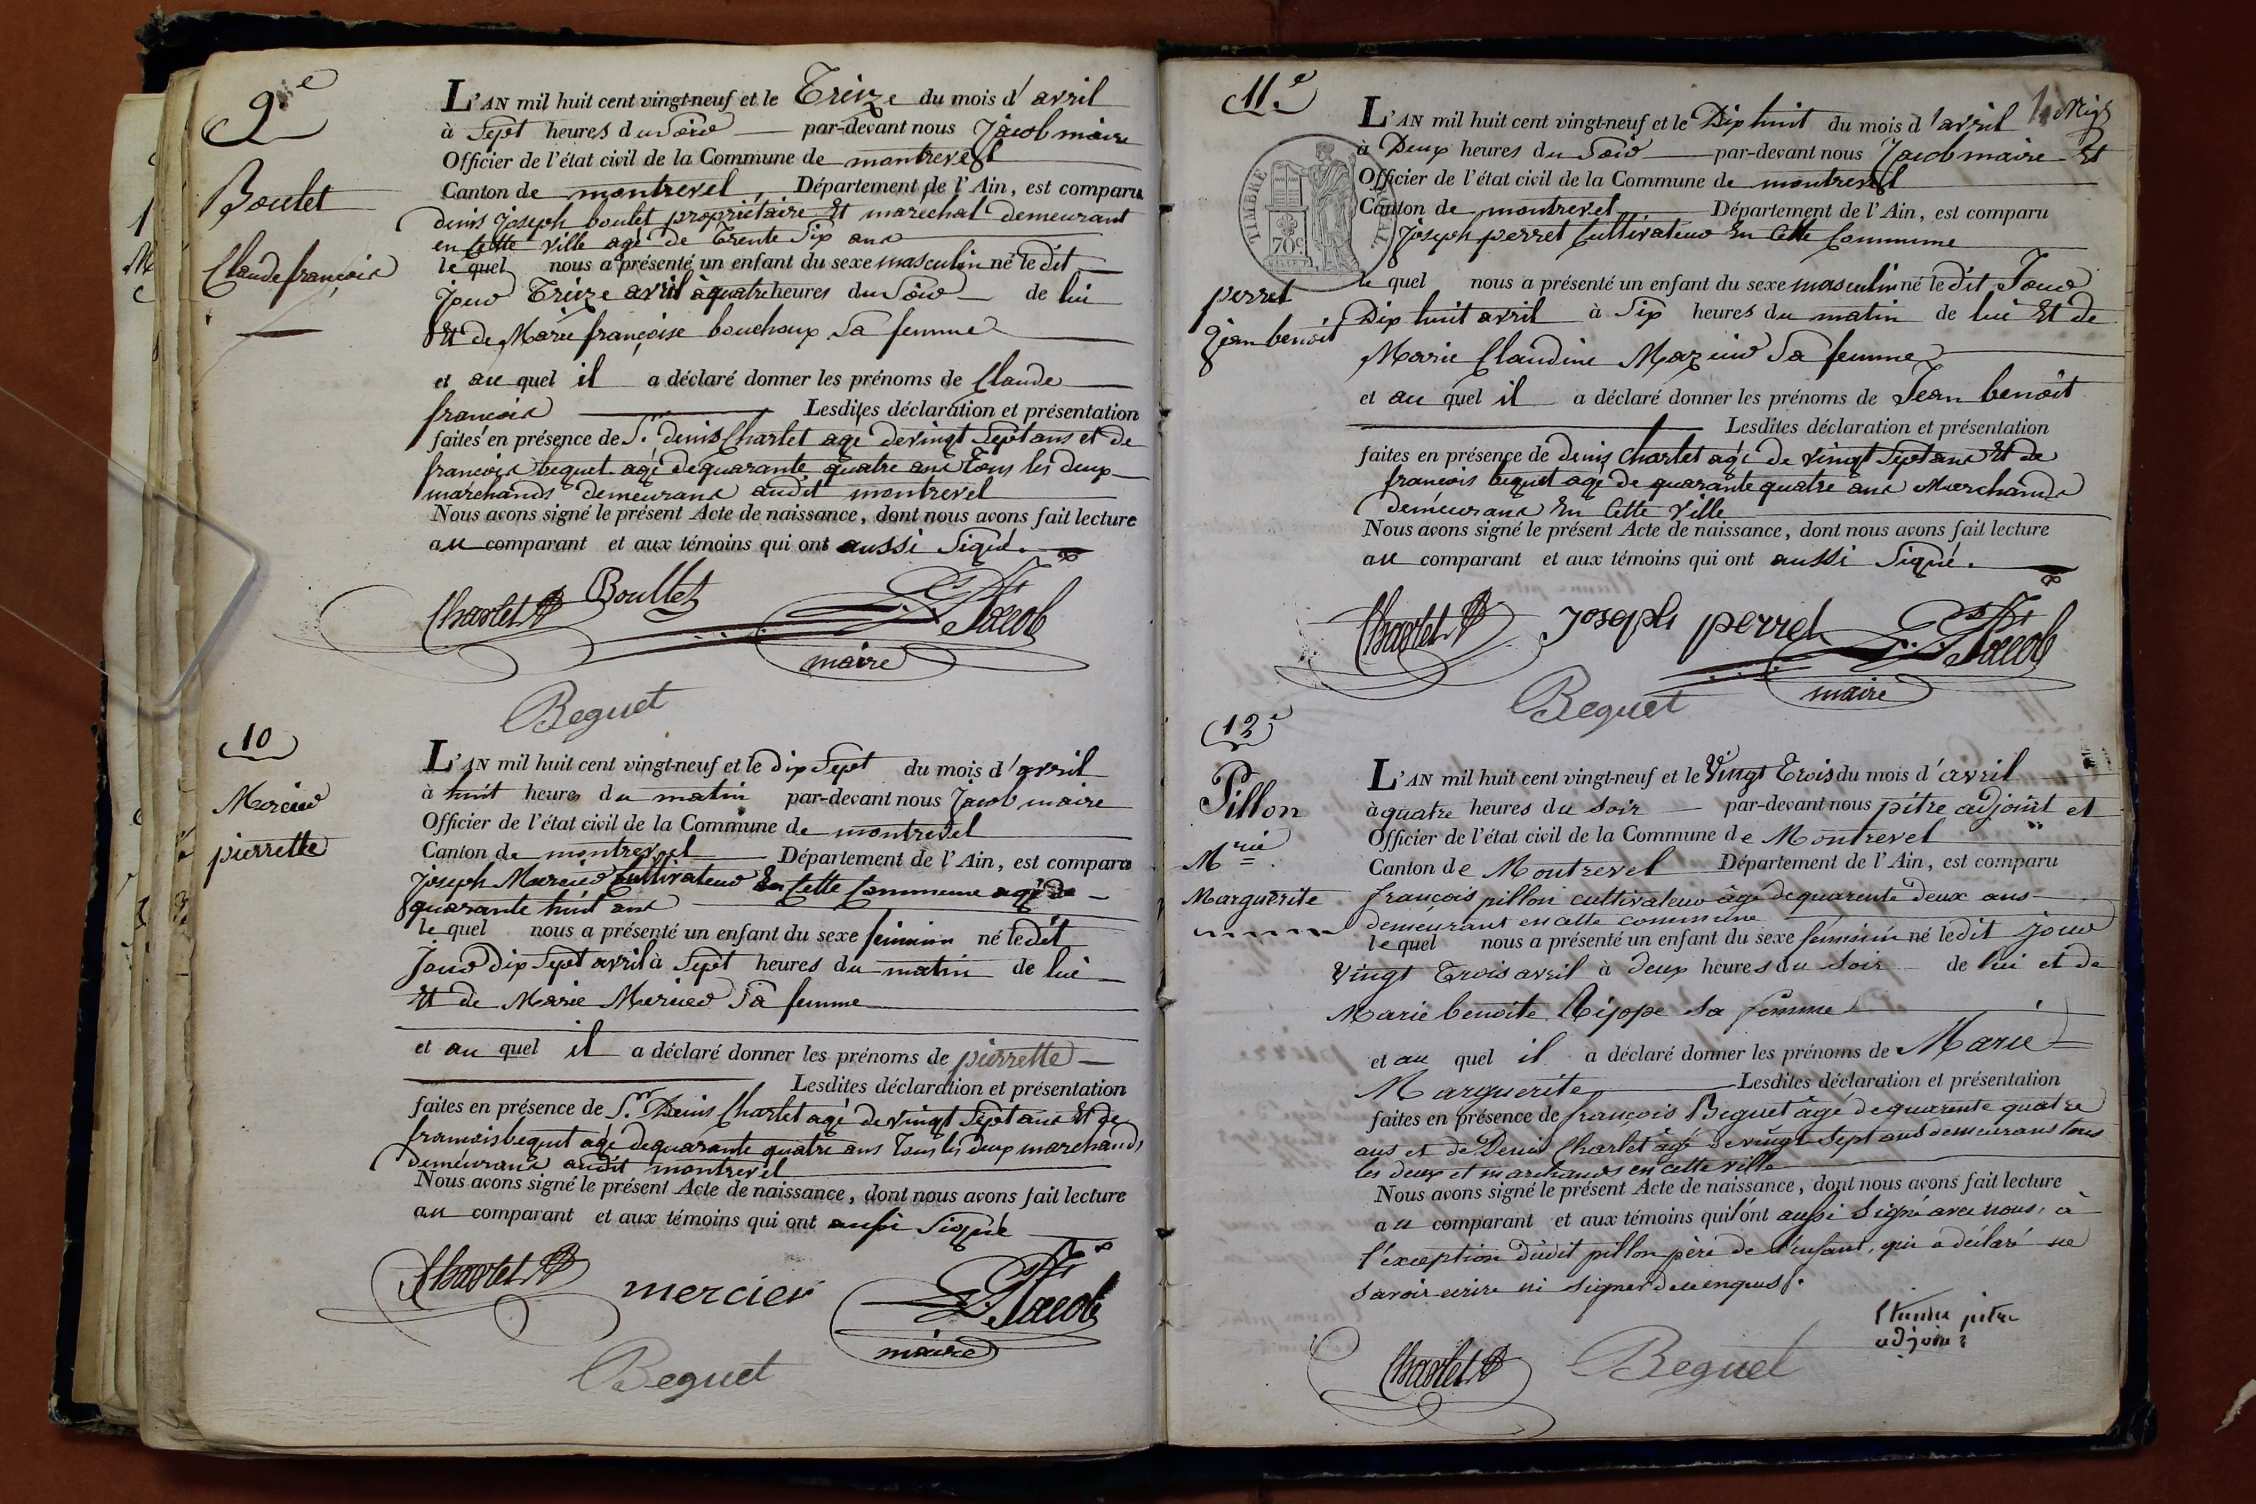 9.e
Boulet
Claude françois
L'AN mil huit cent vingt-neuf et le Treize du mois d'avril
à Sept heures du Soir par-devant nous Jacob maire
Officier de l'état civil de la Commune de montrevel
Canton de montrevel, Département de l'Ain, est comparu
denis Joseph boulet propriétaire Et marechal demeurant
en Cette ville agé de Trente Six ans
lequel nous a présenté un enfant du sexe masculin né le dit
Jour Treize avril à quatre heures du Soir de lui
Et de Marie françoise bouchoux Sa femme
et au quel il a déclaré donner les prénoms de Claude
françois Lesdites déclaration et présentation
faites en présence de S.r denis Charlet agé de vingt Sept ans et de
françois bequet agé de quarante quatre ans Tous les deux
marchands demeurans audit montrevel
Nous avons signé le présent Acte de naissance, dont nous avons fait lecture
au comparant et aux témoins qui ont aussi Signé.
Charlet Boullet Jacob
maire
Beguet
10
Mercier
pierrette
L'AN mil huit cent vingt-neuf et le dix Sept du mois d'avril
à huit heures du matin par-devant nous Jacob maire
Officier de l'état civil de la Commune de montrevel
Canton de montrevel Département de l'Ain, est comparu
Joseph Mercier Cultivateur En Cette Commune agé de
quarante huit ans
lequel nous a présenté un enfant du sexe féminin né le dit
Jour dix Sept avril à Sept heures du matin de lui
Et de Marie Mercier Sa femme
et au quel il a déclaré donner les prénoms de pierrette
Lesdites déclaration et présentation
faites en présence de S.r Denis Charlet agé de vingt Sept ans Et de
francois bequet agé de quarante quatre ans Tous les deux marchands
demeurans audit montrevel
Nous avons signé le présent Acte de naissance, dont nous avons fait lecture
au comparant et aux témoins qui ont aussi Signé
Charlet mercier Jacob
maire
Beguet
11.e
TIMBRE
70c
perret
Jean benoit
L'AN mil huit cent vingt-neuf et le Dix huit du mois d'avril
à Deux heures du Soir par-devant nous Jacob maire Et
Officier de l'état civil de la Commune de montrevel
Canton de montrevel Département de l'Ain, est comparu
Joseph perret Cultivateur En Cette Commune
le quel nous a présenté un enfant du sexe masculin né le dit Jour
Dix huit avril à Six heures du matin de lui Et de
Marie Claudine Mazuir Sa femme
et au quel il a déclaré donner les prénoms de Jean benoit
Lesdites déclaration et présentation
faites en présence de denis Charlet agé de vingt Sept ans Et de
francois bequet agé de quarante quatre ans Marchands
demeurans En Cette Ville
Nous avons signé le présent Acte de naissance, dont nous avons fait lecture
au comparant et aux témoins qui ont aussi Signé.
Charlet Joseph perret Jacob
maire
Beguet
12e
Pillon
M.rie
Marguerite
L'AN mil huit cent vingt-neuf et le Vingt Trois du mois d'avril
à quatre heures du soir par-devant nous pitre adjoint et
Officier de l'état civil de la Commune de Montrevel
Canton de Montrevel Département de l'Ain, est comparu
françois pillon cultivateur âgé de quarente deux ans
demeurant en cette commune
le quel nous a présenté un enfant du sexe féminin né le dit jour
Vingt Trois avril à deux heures du soir de lui et de
Marie benoite sa femme
et au quel il a déclaré donner les prénoms de Marie
Marguerite Lesdites déclaration et présentation
faites en présence de françois Beguet âgé de quarente quatre
ans et de Denis Charlet âgé de vingt Sept ans demeurans tous
les deux et marchands en cette ville
Nous avons signé le présent Acte de naissance, dont nous avons fait lecture
au comparant et aux témoins qui l'ont aussi Signé avec nous, à
l'exception dudit pillon père de l'enfant, qui a déclaré ne
savoir ecrire ni signer de ce enquis.
Etienne pitre
adjoint
Charlet Beguet